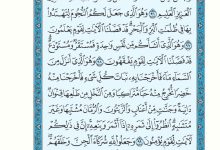 ٱلْعَزِيزِ ٱلْعَلِيمِ ۝ وَهُوَ ٱلَّذِى جَعَلَ لَكُمُ ٱلنُّجُومَ لِتَهْتَدُوا۟
بِهَا فِى ظُلُمَـٰتِ ٱلْبَرِّ وَٱلْبَحْرِ ۗ قَدْ فَصَّلْنَا ٱلْـَٔايَـٰتِ لِقَوْمٍ يَعْلَمُونَ
۝ وَهُوَ ٱلَّذِىٓ أَنشَأَكُم مِّن نَّفْسٍ وَٰحِدَةٍ فَمُسْتَقَرٌّ وَمُسْتَوْدَعٌ ۗ
قَدْ فَصَّلْنَا ٱلْـَٔايَـٰتِ لِقَوْمٍ يَفْقَهُونَ ۝ وَهُوَ ٱلَّذِىٓ أَنزَلَ مِنَ
ٱلسَّمَآءِ مَآءً فَأَخْرَجْنَا بِهِۦ نَبَاتَ كُلِّ شَىْءٍ فَأَخْرَجْنَا مِنْهُ
خَضِرًا نُّخْرِجُ مِنْهُ حَبًّا مُّتَرَاكِبًا وَمِنَ ٱلنَّخْلِ مِن طَلْعِهَا قِنْوَانٌ
دَانِيَةٌ وَجَنَّـٰتٍ مِّنْ أَعْنَابٍ وَٱلزَّيْتُونَ وَٱلرُّمَّانَ مُشْتَبِهًا وَغَيْرَ
مُتَشَـٰبِهٍ ۗ ٱنظُرُوٓا۟ إِلَىٰ ثَمَرِهِۦٓ إِذَآ أَثْمَرَ وَيَنْعِهِۦٓ ۚ إِنَّ فِى ذَٰلِكُمْ
لَـَٔايَـٰتٍ لِّقَوْمٍ يُؤْمِنُونَ ۝ وَجَعَلُوا۟ لِلَّهِ شُرَكَآءَ ٱلْجِنَّ وَخَلَقَهُمْ